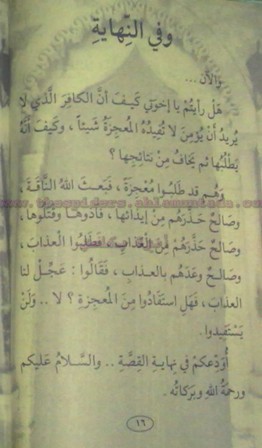 وَفي النِّهايَةِ
والآن ...
هَلْ رأيتُمْ يا إخوَتي كَيفَ أنَّ الكافِرَ الَّذي لا
يُريدُ أنْ يُؤمِنَ لا تُفيدُهُ المُعجِزَةُ شَيئاً ، وكَيفَ أنَّهُ
يَطلُبُها ثم يَخافُ مِنْ نتائجِها ؟
وَهُم قد طَلَبُوا مُعْجِزَةً ، فَبَعثَ اللهُ النَّاقَةَ ،
وصَالحٌ حَذَّرَهُم مِنْ إيذائِها ، فآذَوهَا وقَتَلُوها ،
وصَالحٌ حَذَّرَهُمْ مِنَ العَذابِ ، فَطَلَبُوا العذابَ ،
وصَالحٌ وعَدَهُم بالعـذابِ ، فَقَالُوا : عَجِّلْ لنا
العذابَ ، فَهَلِ استَفَادُوا مِنَ المعجِزةِ ؟ لا .. وَلَنْ
يَسْتَفِيدوا .
أُوَدِّعكُمْ في نِهايةِ القِصَّةِ .. والسَّلامُ عَليكم
ورحمَةُ اللهِ وبَرَكاتُه .
١٦